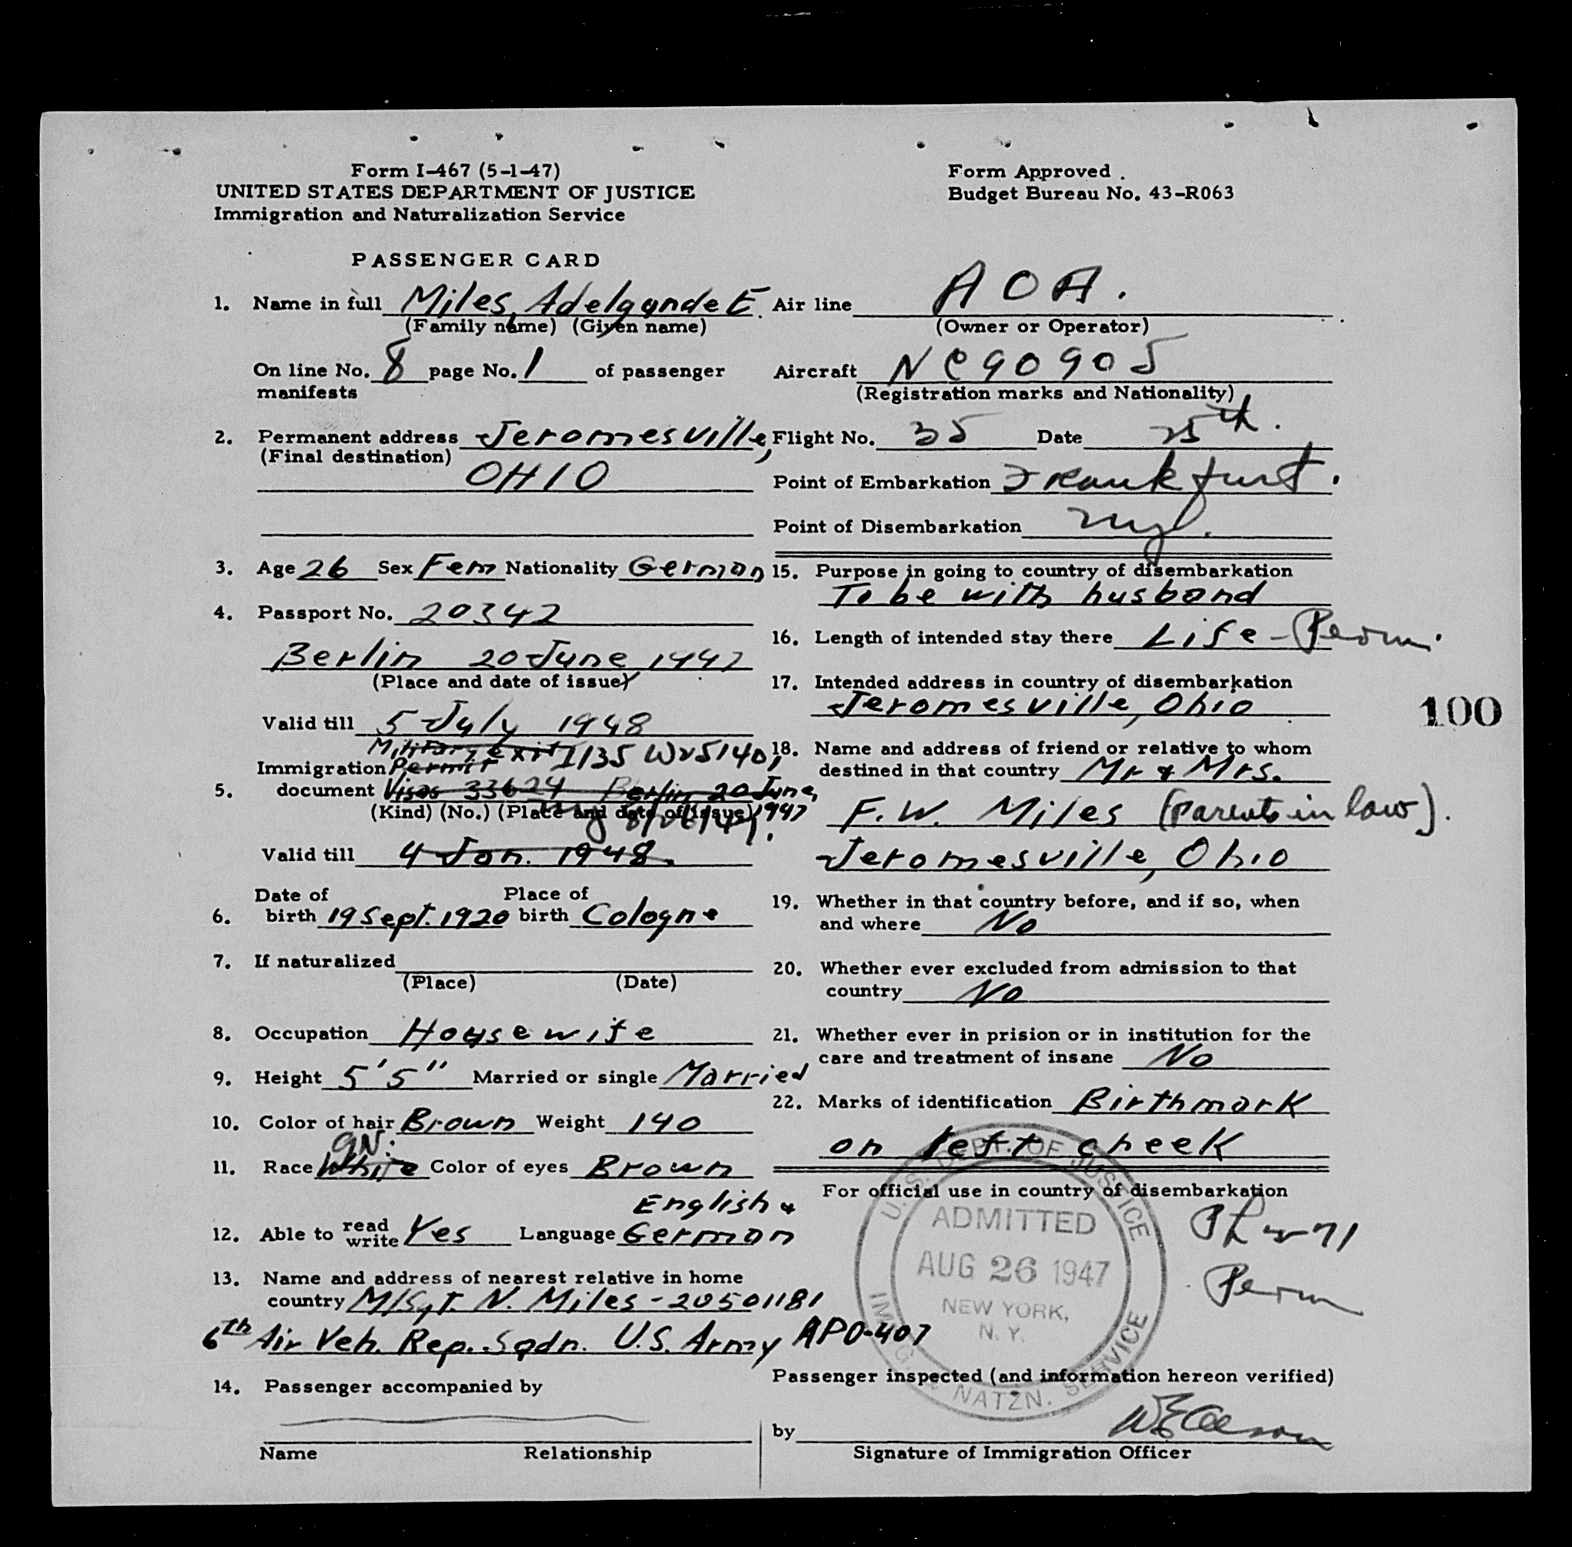 Form I-467 (5-1-47)
UNITED STATES DEPARTMENT OF JUSTICE
Immigration and Naturalization Service
Form Approved .
Budget Bureau No. 43-R063
PASSENGER CARD
1. Name in full Miles, Adelgunde E.
(Family name) (Given name)
On line No. 8 page No. 1 of passenger
manifests
2. Permanent address Jeromesville,
(Final destination)
OHIO
3. Age 26 Sex Fem Nationality German
4. Passport No. 20342
Berlin 20 June 1947
(Place and date of issue)
Valid till 5 July 1948
Military Exit I135 W25140,
Immigration Permit
5. document Visas 33624 Berlin 20 June,
(Kind) (No.) (Place and date of issue) 1947
8/26/47.
Valid till 4 Jan. 1948.
Date of Place of
6. birth 19 Sept. 1920 birth Cologne
7. If naturalized
(Place) (Date)
8. Occupation Housewife
9. Height 5'5" Married or single Married
10. Color of hair Brown Weight 140
11. Race White Color of eyes Brown
English &
12. Able to read write Yes Language German
13. Name and address of nearest relative in home
country M/Sgt. N. Miles - 20501181
6th Air Veh. Rep. Sqdn. U.S. Army APO-407
14. Passenger accompanied by
Name Relationship
Air line A O A.
(Owner or Operator)
Aircraft NC90905
(Registration marks and Nationality)
Flight No. 35 Date 25th.
Point of Embarkation Frankfurt.
Point of Disembarkation
15. Purpose in going to country of disembarkation
To be with husband
16. Length of intended stay there Life - Perm.
17. Intended address in country of disembarkation
Jeromesville, Ohio
18. Name and address of friend or relative to whom
destined in that country Mr & Mrs.
F. W. Miles (parents in law).
Jeromesville, Ohio
19. Whether in that country before, and if so, when
and where No
20. Whether ever excluded from admission to that
country No
21. Whether ever in prision or in institution for the
care and treatment of insane No
22. Marks of identification Birthmark
on left cheek
For official use in country of disembarkation
U.S. DEPT. OF JUSTICE
ADMITTED
AUG 26 1947
NEW YORK,
N. Y.
IMMIG. & NATZN. SERVICE
Perm
Passenger inspected (and information hereon verified)
by
Signature of Immigration Officer
100